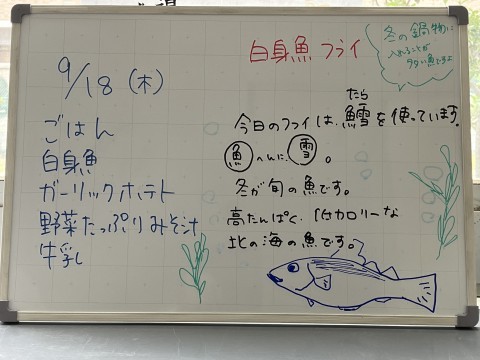 9/18(木)
ごはん
白身魚
ガーリックポテト
野菜たっぷりみそ汁
牛乳
白身魚フライ
冬の鍋物に
入れることが
多い魚ですよ
たら
今日のフライは、鱈を使っています。
魚へんに、雪。
冬が旬の魚です。
高たんぱく、低カロリーな
北の海の魚です。